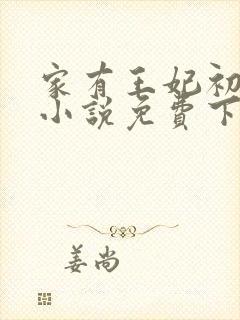 家有王妃初
小说免费下
姜尚